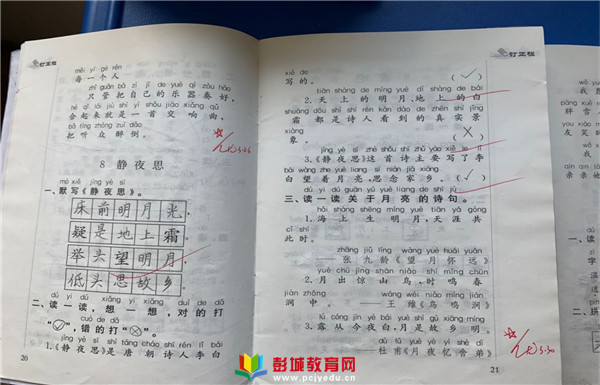 订正栏
měi yí gè rén
每一个人
zhǐ guǎn bǎ zì jǐ de yuè qì zòu hǎo
只管把自己的乐器奏好,
hé qǐ lái jiù shì yì shǒu jiāo xiǎng qǔ
合起来就是一首交响曲,
bǎ tīng zhòng zuì dǎo
把听众醉倒。
8 静夜思
mò xiě jìng yè sī
一、默写《静夜思》。
床前明月光,
疑是地上霜。
举头望明月,
低头思故乡。
dú yi dú xiǎng yi xiǎng duì de dǎ
二、读一读,想一想,对的打
cuò de dǎ
“✓”,错的打“×”。
jìng yè sī shì táng cháo shī rén lǐ bái
1.《静夜思》是唐朝诗人李白
20
订正栏
xiě de
写的。 (✓)
tiān shàng de míng yuè dì shàng de bái
2.天上的明月,地上的白
shuāng dōu shì shī rén kàn dào de zhēn shí jǐng
霜都是诗人看到的真实景
xiàng
象。 (×)
jìng yè sī zhè shǒu shī zhǔ yào xiě le lǐ
3.《静夜思》这首诗主要写了李
bái wàng zhe yuè liang sī niàn jiā xiāng
白望着月亮,思念家乡。 (✓)
dú yi dú guān yú yuè liang de shī jù
三、读一读关于月亮的诗句。
hǎi shàng shēng míng yuè tiān yá gòng
1.海上生明月,天涯共
cǐ shí
此时。
zhāng jiǔ líng wàng yuè huái yuǎn
——张九龄《望月怀远》
yuè chū jīng shān niǎo shí míng chūn
2.月出惊山鸟,时鸣春
jiàn zhōng wáng wéi niǎo míng jiàn
涧中。 ——王维《鸟鸣涧》
lù cóng jīn yè bái yuè shì gù xiāng míng
3.露从今夜白,月是故乡明。
dù fǔ yuè yè yì shè dì
——杜甫《月夜忆舍弟》
21
彭城教育网
www.pcjyedu.cn